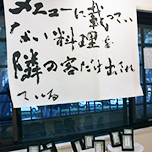 メニューに載ってい
ない料理を
隣の客だけ出され
ている